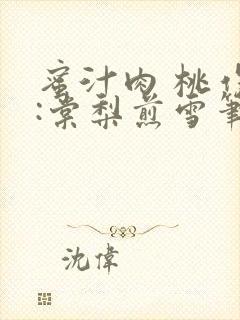 蜜汁肉桃
:棠梨煎雪筆
沈偉